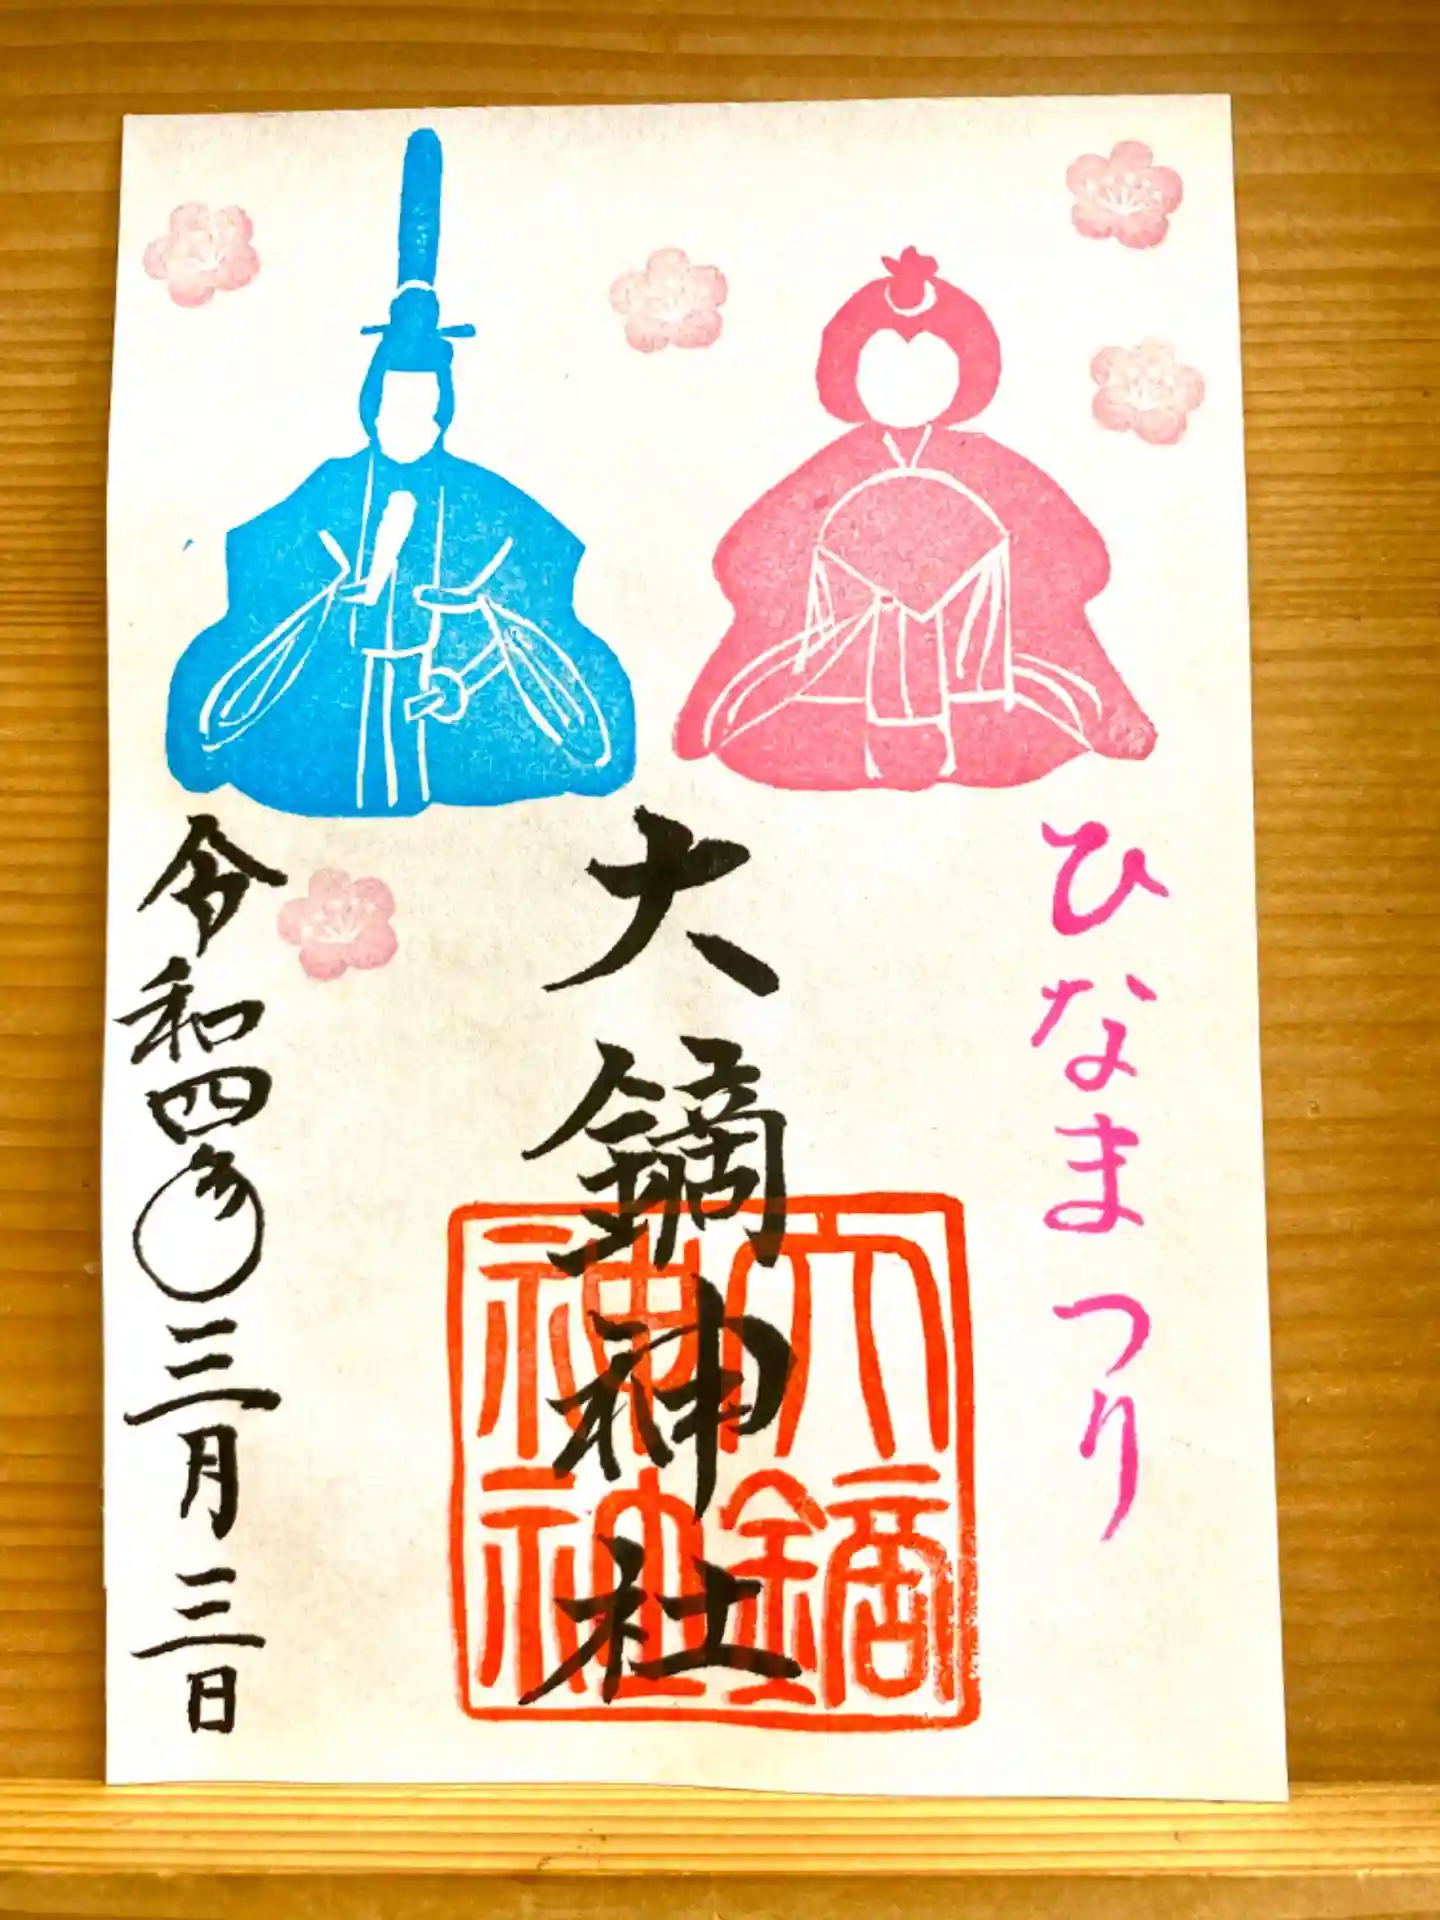 ひなまつり
大鏑神社
大鏑
神社
令和四年三月三日